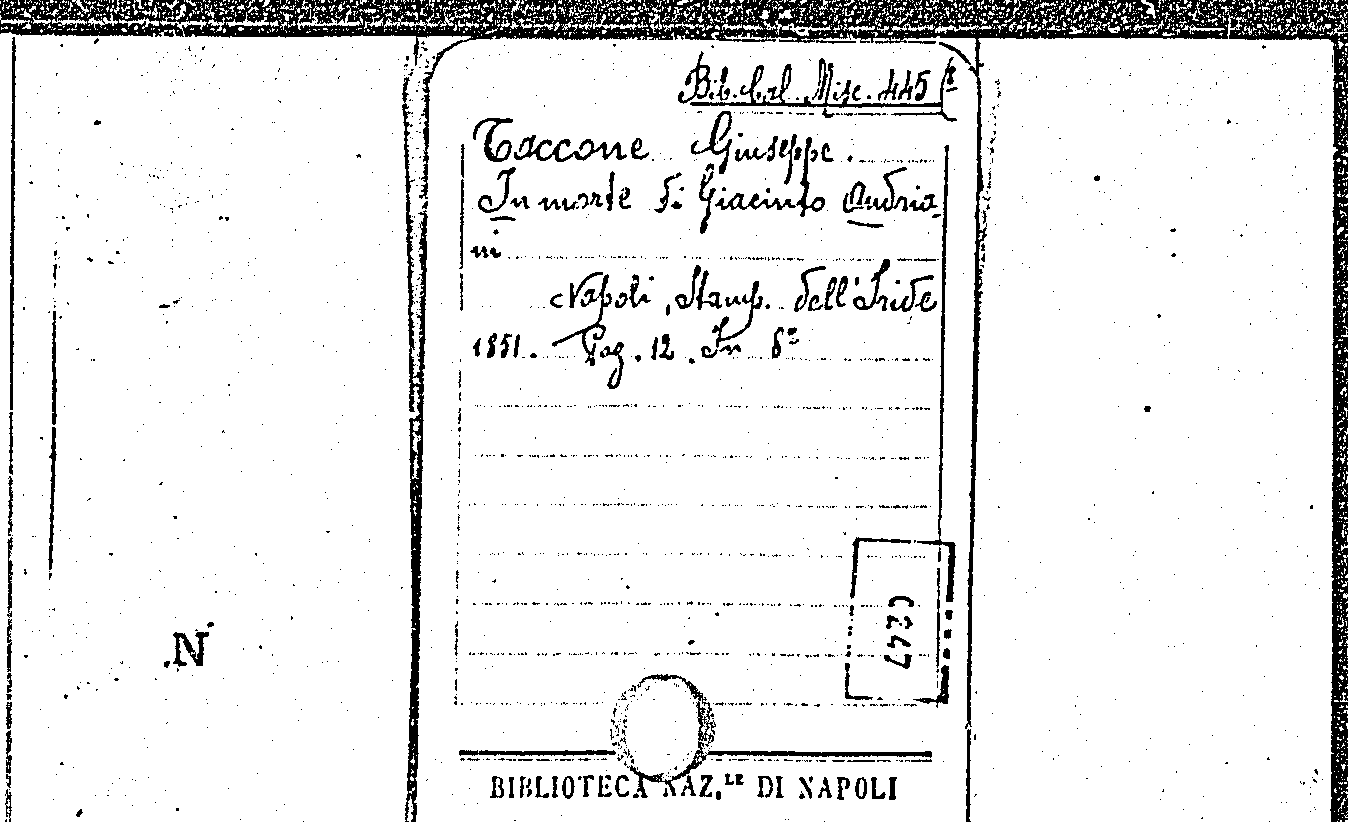 Bib. Cal. Misc. 445 (2
Taccone Giuseppe.
In morte di Giacinto Andria
ni
Napoli, Stamp. dell'Iride
1851. Pag. 12. In 8º
C247
BIBLIOTECA NAZ.LE DI NAPOLI
N